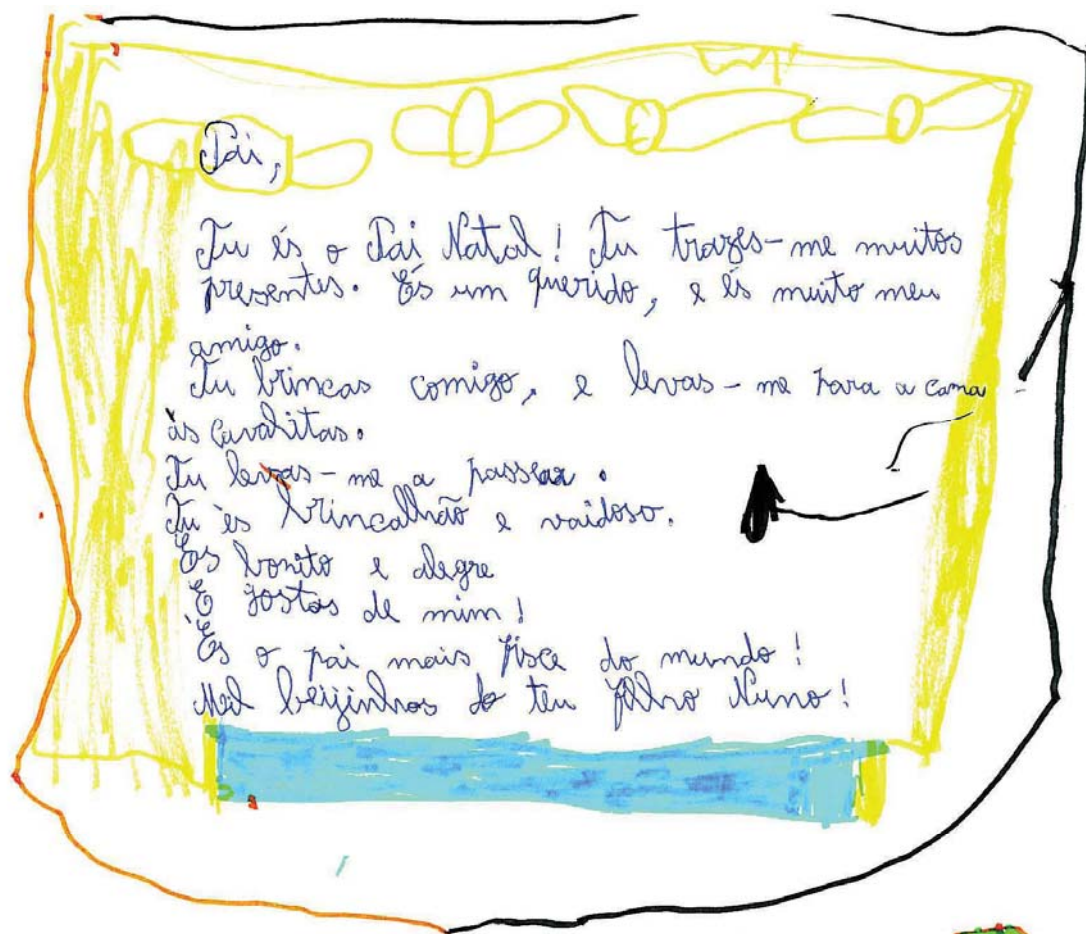 Pai,
Tu és o Pai Natal! Tu trazes-me muitos
presentes. És um querido, e és muito meu
amigo.
Tu brincas comigo, e levas-me para a cama
às cavalitas.
Tu levas-me a passear.
Tu és brincalhão e vaidoso.
És bonito e alegre
E gostas de mim!
És o pai mais fisce do mundo!
Mil beijinhos do teu filho Nuno!